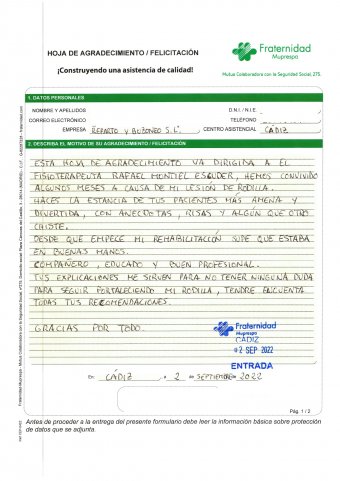 HOJA DE AGRADECIMIENTO / FELICITACIÓN
¡Construyendo una asistencia de calidad!
Fraternidad
Muprespa
Mutua Colaboradora con la Seguridad Social, 275.
1. DATOS PERSONALES
NOMBRE Y APELLIDOS
D.N.I. / N.I.E.
CORREO ELECTRÓNICO
TELÉFONO
EMPRESA REPARTO Y BUZONEO S.L. CENTRO ASISTENCIAL CÁDIZ
2. DESCRIBA EL MOTIVO DE SU AGRADECIMIENTO / FELICITACIÓN
ESTA HOJA DE AGRADECIMIENTO VA DIRIGIDA A EL
FISIOTERAPEUTA RAFAEL MONTIEL ESCUDER, HEMOS CONVIVIDO
ALGUNOS MESES A CAUSA DE MI LESIÓN DE RODILLA.
HACES LA ESTANCIA DE TUS PACIENTES MAS AMENA Y
DIVERTIDA, CON ANECDOTAS, RISAS Y ALGÚN QUE OTRO
CHISTE.
DESDE QUE EMPECE MI REHABILITACIÓN SUPE QUE ESTABA
EN BUENAS MANOS.
COMPAÑERO, EDUCADO Y BUEN PROFESIONAL.
TUS EXPLICACIONES ME SIRVEN PARA NO TENER NINGUNA DUDA
PARA SEGUIR FORTALECIENDO MI RODILLA, TENDRE ENCUENTA
TODAS TUS RECOMENDACIONES.
GRACIAS POR TODO.
Fraternidad
Muprespa
CÁDIZ
02 SEP 2022
ENTRADA
En CÁDIZ, a 2 de SEPTIEMBRE 2022
Pág. 1 / 2
Antes de proceder a la entrega del presente formulario debe leer la información básica sobre protección
de datos que se adjunta.